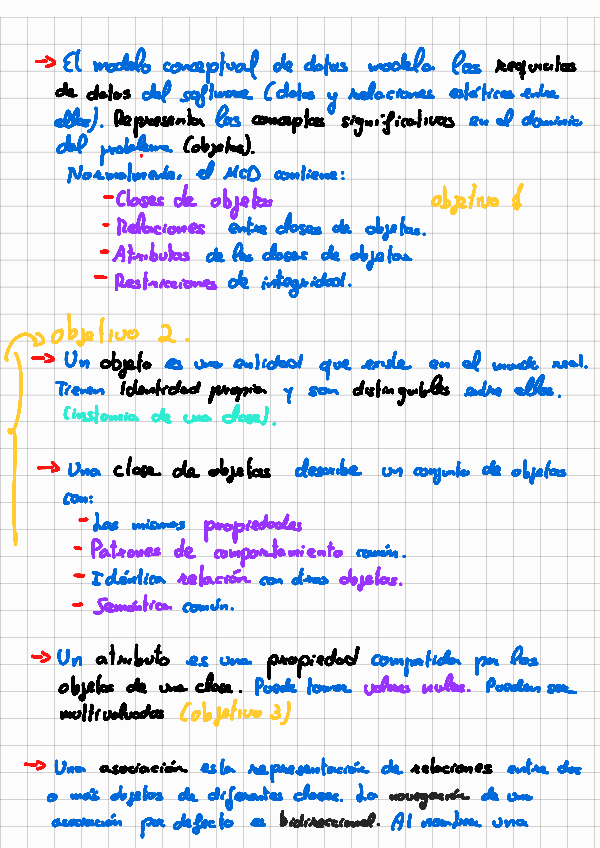 → El modelo conceptual de datos modela los requisitos
de datos del software (datos y relaciones estáticas entre
ellos). Representa los conceptos significativos en el dominio
del problema (objetos).
Normalmente, el MCD contiene:
- Clases de objetos
objetivo 1
- Relaciones entre clases de objetos.
- Atributos de las clases de objetos
- Restricciones de integridad.
objetivo 2.
→ Un objeto es una entidad que existe en el mundo real.
Tienen identidad propia y son distinguibles entre ellos.
(instancia de una clase).
→ Una clase de objetos describe un conjunto de objetos
con:
- Las mismas propiedades
- Patrones de comportamiento común.
- Idéntica relación con otros objetos.
- Semántica común.
→ Un atributo es una propiedad compartida por los
objetos de una clase. Puede tomar valores nulos. Pueden ser
multivaluados (objetivo 3)
→ Una asociación es la representación de relaciones entre dos
o más objetos de diferentes clases. La navegación de una
asociación por defecto es bidireccional. Al nombre una